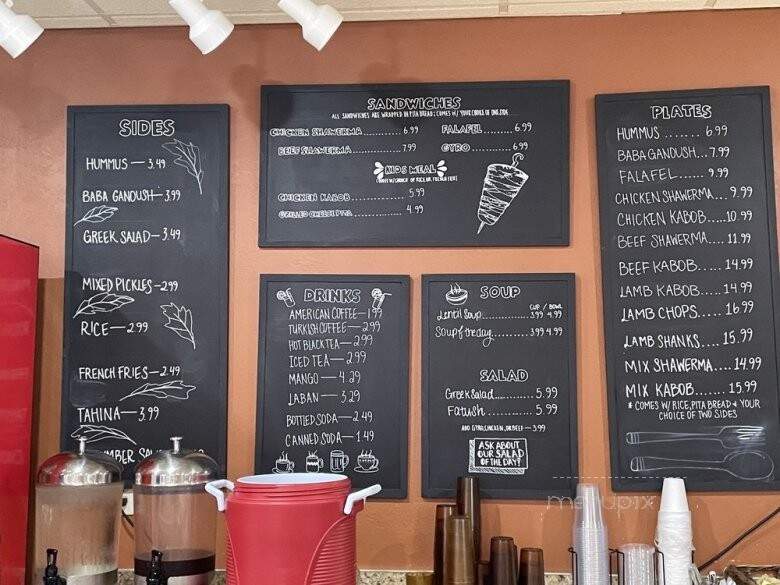 SIDES
HUMMUS — 3.49
BABA GANOUSH — 3.99
GREEK SALAD — 3.49
MIXED PICKLES - 2.99
RICE — 2.99
FRENCH FRIES — 2.49
TAHINA — 3.99
SANDWICHES
ALL SANDWICHES ARE WRAPPED IN PITA BREAD; COMES W/ YOUR CHOICE OF ONE SIDE
CHICKEN SHAWERMA............ 6.99
BEEF SHAWERMA............ 7.99
FALAFEL......... 6.99
GYRO......... 6.99
KIDS MEAL
CHICKEN KABOB............ 5.99
GRILLED CHEESE PITA............ 4.99
DRINKS
AMERICAN COFFEE — 1.99
TURKISH COFFEE — 2.99
HOT BLACK TEA — 2.99
ICED TEA — 2.99
MANGO — 4.29
LABAN — 3.29
BOTTLED SODA — 2.49
CANNED SODA — 1.49
SOUP
CUP / BOWL
Lentil Soup............ 3.99 4.99
Soup of the day............ 3.99 4.99
SALAD
Greek Salad............ 5.99
Fatush............ 5.99
ADD GYRO, CHICKEN, OR BEEF — 3.99
ASK ABOUT
OUR SALAD
OF THE DAY!
PLATES
HUMMUS ....... 6.99
BABA GANOUSH...7.99
FALAFEL...... 9.99
CHICKEN SHAWERMA... 9.99
CHICKEN KABOB...10.99
BEEF SHAWERMA.... 11.99
BEEF KABOB..... 14.99
LAMB KABOB..... 14.99
LAMB CHOPS..... 16.99
LAMB SHANKS.... 15.99
MIX SHAWERMA....14.99
MIX KABOB...... 15.99
* COMES W/ RICE, PITA BREAD & YOUR
CHOICE OF TWO SIDES
menupix